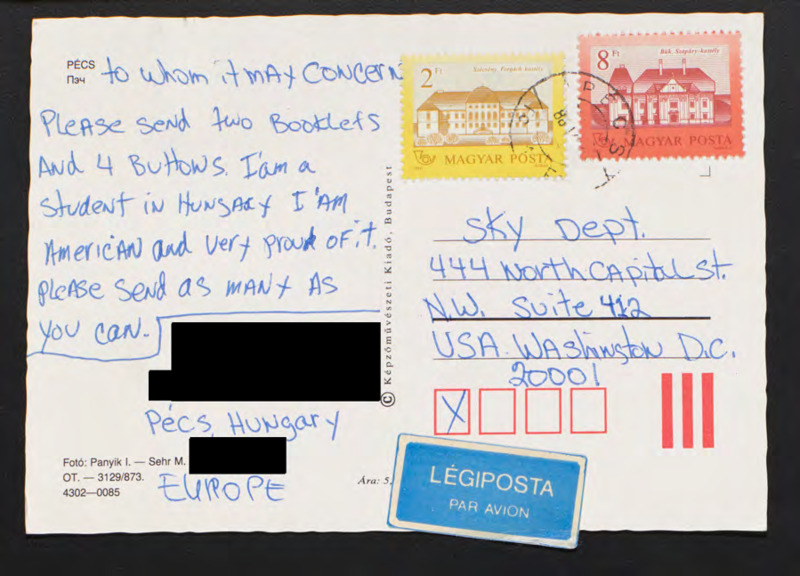 PÉCS
Пэч
to whom it may concern
Please send two Booklets
And 4 Buttows. I'am a
student in Hungary I'AM
American and very proud of it.
please send as many as
you can.
Pécs, Hungary
EUROPE
Fotó: Panyik I. — Sehr M.
OT. — 3129/873.
4302—0085
Ára: 5.
© Képzőművészeti Kiadó, Budapest
2 Ft
MAGYAR POSTA
8 Ft
Bük, Szapáry-kastély
MAGYAR POSTA
PÉCS
Sky Dept.
444 North Capitul St.
N.W. Suite 412
USA. Washington D.C.
20001
X
LÉGIPOSTA
PAR AVION